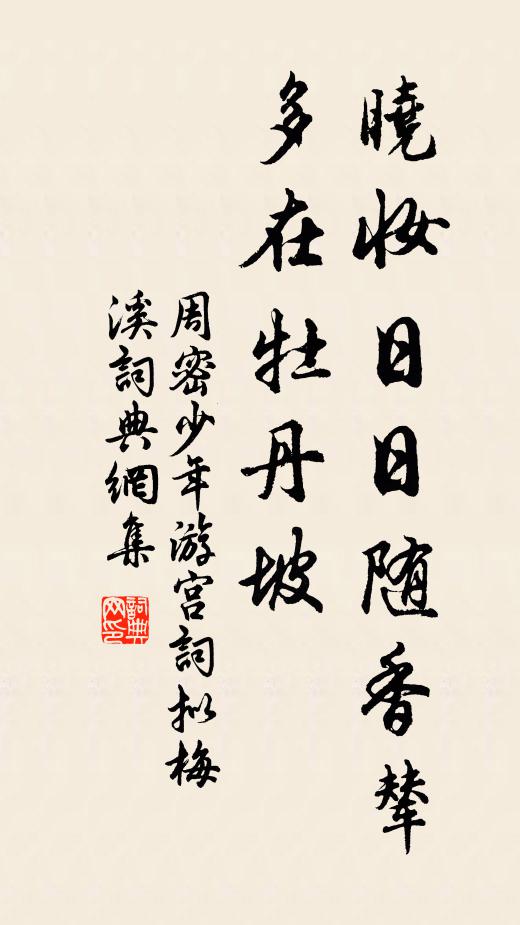 曉妝日日随香輦
多在牡丹坡
周密少年游宫詞拟梅
溪詞典網集
詞典网印